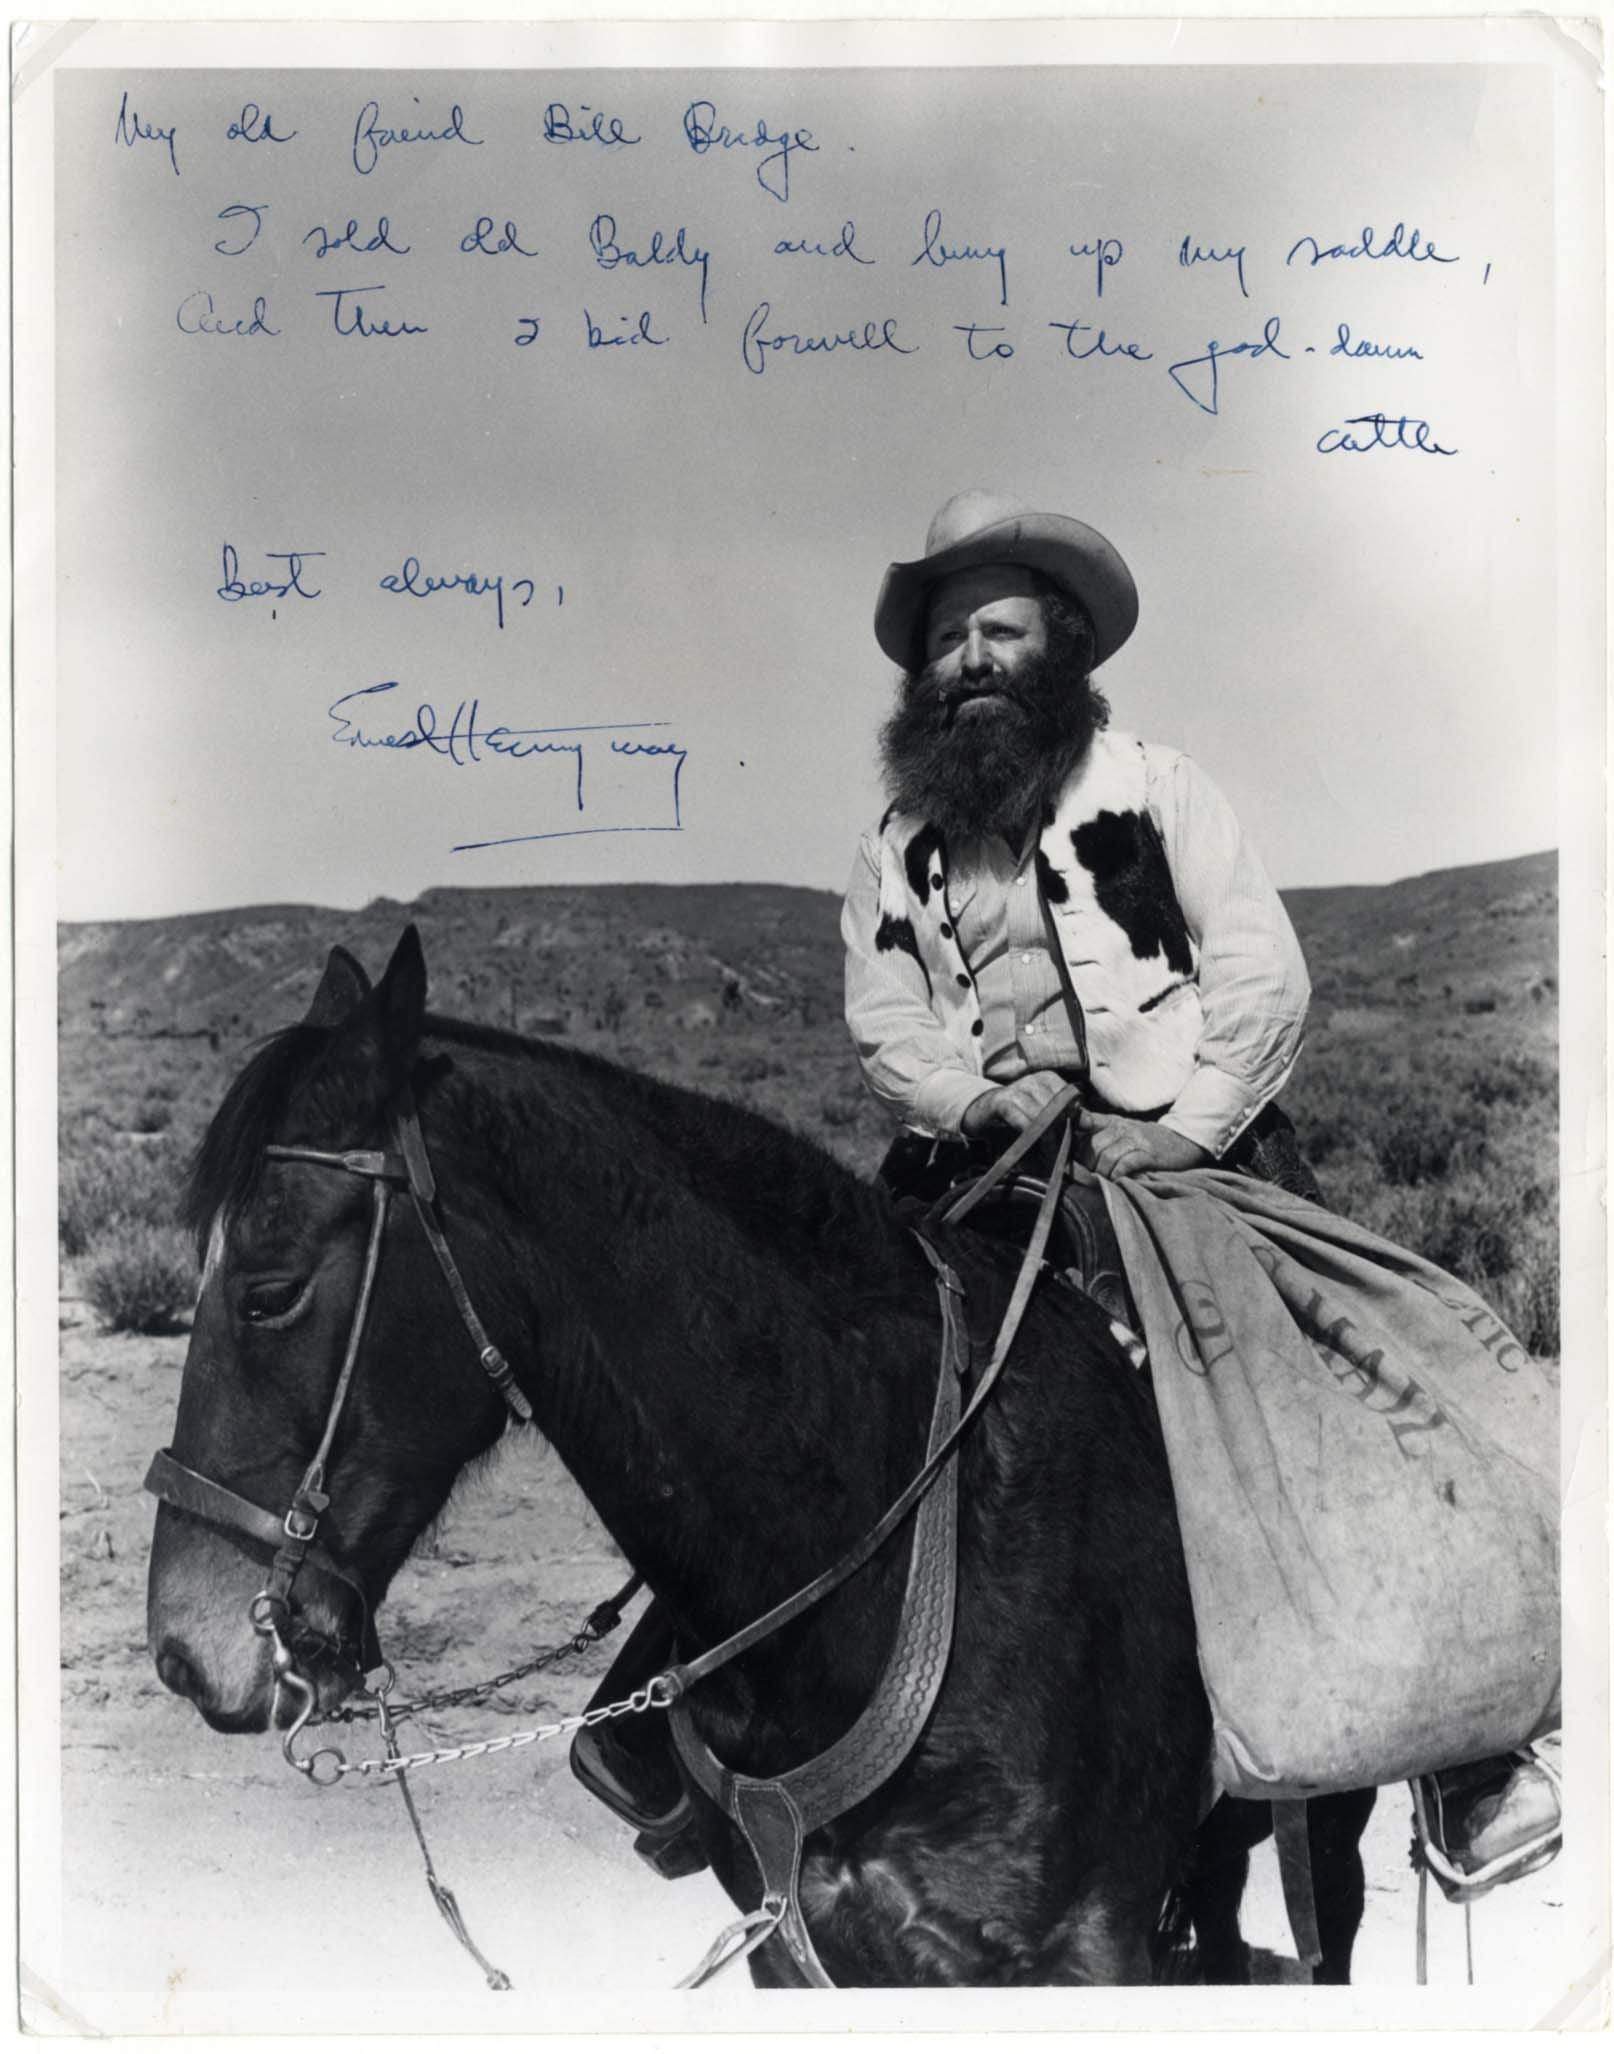 My old friend Bill Bridge.
I sold old Baldy and hung up my saddle,
And then I bid farewell to the god-damn
cattle
best always,
Ernest Hemingway.
MAIL
TIC